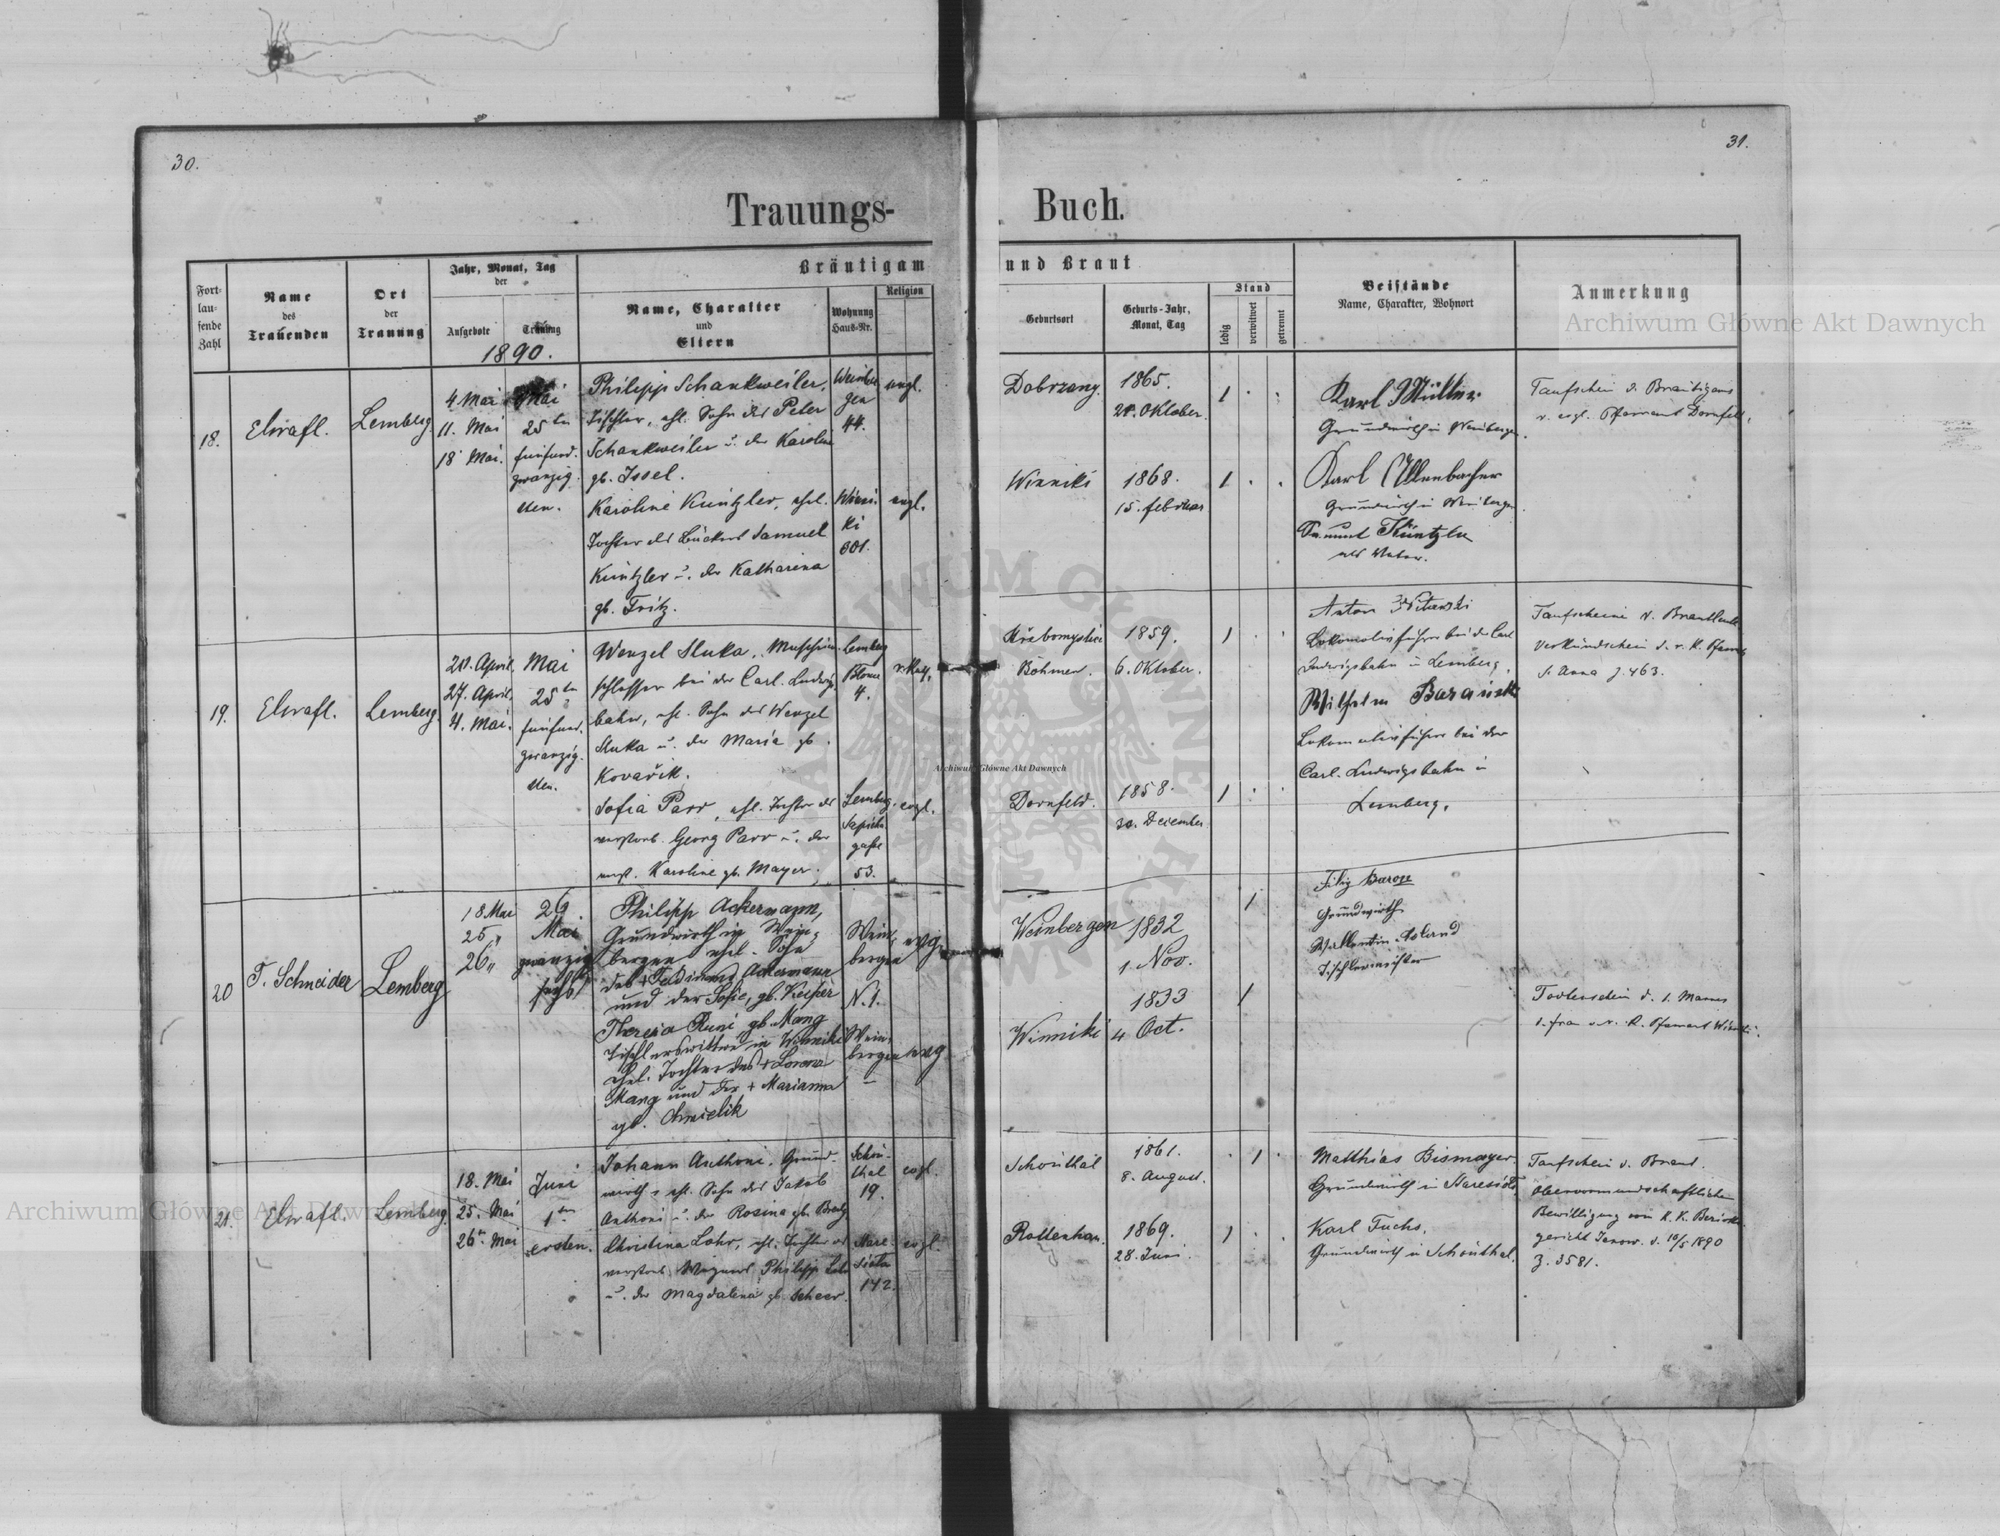 30.
31.
Trauungs-Buch.
Fort-
lau-
fende
Zahl
Name
des
Trauenden
Ort
der
Trauung
Jahr, Monat, Tag
der
Aufgebote
Trauung
1890.
Bräutigam und Braut
Name, Charakter
und
Eltern
Wohnung
Haus-Nr.
Religion
Geburtsort
Geburts-Jahr,
Monat, Tag
Stand
ledig
verwitwet
getrennt
Beistände
Name, Charakter, Wohnort
Anmerkung
18.
Lemberg
4. Mai
11. Mai
18. Mai.
Mai
25ten
fünfund-
zwanzig-
sten.
Philipp Schankweiler,
Tischler, ehl. Sohn des Peter
Schankweiler u. der Karoline
gb. Issel.
Weinber
gen
44.
evgl.
Dobrzany.
1865.
Oktober.
1
Karl Müller
Grundwirth in Weinbergen.
Taufschein d. Bräutigams
v. evgl. Pfarramt Dornfeld.
Karoline Küntzler, ehel.
Tochter des Bäckers Samuel
Küntzler u. der Katharina
gb. Fritz.
Winni-
ki
601.
evgl.
Winniki
1868.
15. Februar
1
Karl Ullenbacher
Grundwirth in Weinbergen
Samuel Küntzler
als Vater.
19.
Lemberg.
20. April.
27. April.
4. Mai.
Mai
25ten
fünfund-
zwanzig-
sten.
Wenzel Sluka, Maschin-
schlosser bei der Carl. Ludwigs-
bahn, ehl. Sohn des Wenzel
Sluka u. der Maria gb.
Kovařik.
Lemberg
4.
r. kath.
Böhmen.
1859.
6. Oktober.
1
Anton
Lokomotivführer bei der Carl
Ludwigsbahn in Lemberg.
Wilhelm
Lokomotivführer bei der
Carl. Ludwigsbahn in
Lemberg.
Taufscheine d. Brautleute
Verkündschein d. r. k. Pfarre
S. Anna Z. 463.
Sofia Parr, ehl. Tochter des
verstorb. Georg Parr u. der
Karoline gb. Mayer.
Lemberg.
Sapieha
gasse
53.
evgl.
Dornfeld.
1858.
30. Dezember
1
20
T. Schneider
Lemberg
18 Mai
25 "
26 "
26.
Mai
zwanzig
sechs
Philipp Ackermann,
Grundwirth in Wein-
bergen ehel. Sohn
des + Ferdinand Ackermann
und der Sofie, gb. Kesper
Wein-
bergen
N. 1.
evg.
Weinbergen
1832
1. Nov.
1
Filip Baron
Grundwirth
Wallentin
Tischlermeister
Theresia Runi gb. Mang
Tischlerswittwe in Winniki
ehel. Tochter des + Lorenz
Mang und der + Marianna
gb. Chmielik
Wein-
bergen
evg
Winniki
1833
4 Oct.
1
Todtenschein d. 1. Mannes
21.
Lemberg.
18. Mai
25. Mai
26. Mai
Juni
1ten
ersten.
Johann Anthoni, Grund-
wirth, ehl. Sohn des Jakob
Anthoni u. der Rosina gb.
Schön-
thal
19.
evgl.
Schönthal
1861.
8. August.
1
Matthias Bismayer.
Grundwirth in
Taufschein d. Braut.
Obervormundschaftliche
Bewilligung vom K. K. Bezirks-
gericht Janow. d. 10/5 1890
Z. 3581.
Christina Lohr, ehl. Tochter des
verstorb. Wagners Philipp Lohr
u. der Magdalena gb. Scheer.
142.
evgl.
Rottenhan.
1869.
28. Juni.
1
Karl Fuchs.
Grundwirth in Schönthal.
Archiwum Główne Akt Dawnych
Archiwum Główne Akt Dawnych
Archiwum Główne Akt Dawnych